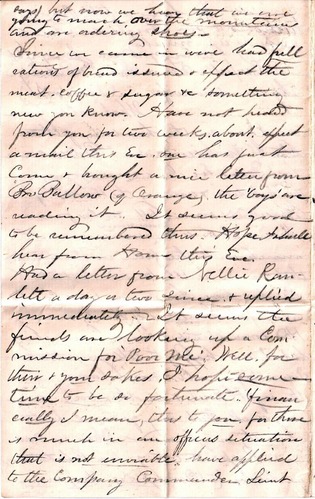 ears) but now we hear that we are
going to march over the mountains
and are ordering shoes.
Since we came in we've had full
rations of bread issued & expect the
meat. coffee & sugar &c something
new you know. Have not heard
from you for two weeks. about, expect
a mail this Eve. one has just
Come & brought a nice letter from
Bro Ballou (of Orange), the boys are
reading it. It seems good
to be remembered thus. Hope I shall
hear from Home this Eve.
Had a letter from Nellie Ran-
lett a day or two since & replied
immediately. It seems the
friends are looking up a Com-
mission for "Poor Me". Well, for
their & your sakes, I hope some
time to be so fortunate. Finan
cially I mean, this to you, for there
is much in an officers situation
that is not enviable. have applied
to the Company Commander, Lieut